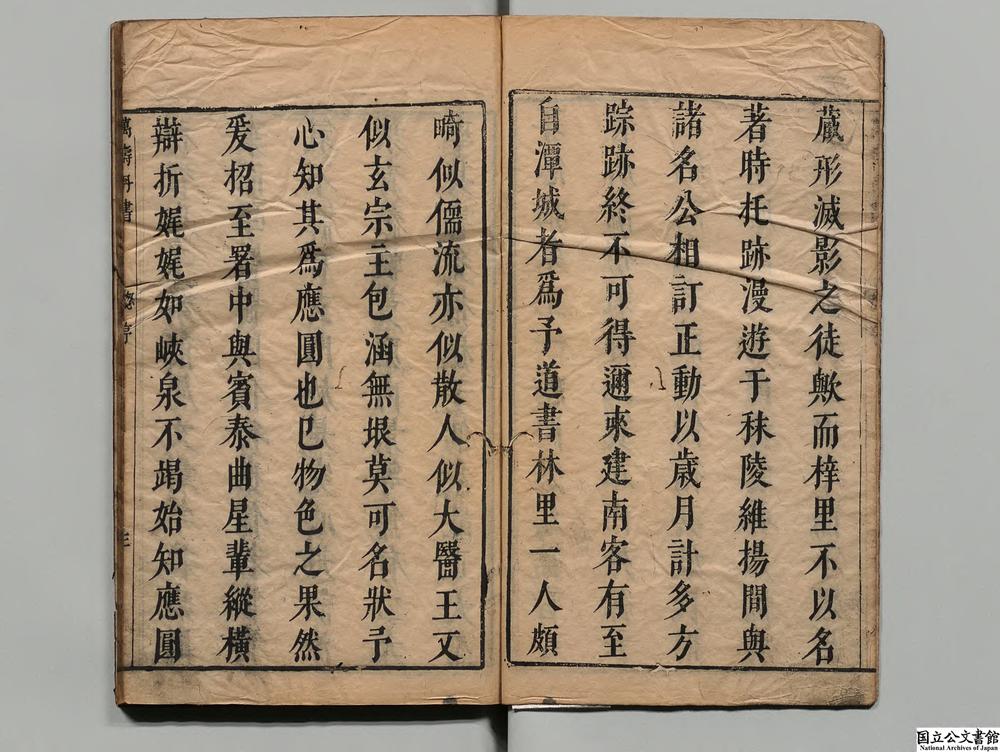 藏形滅影之徒歟而梓里不以名
著時托跡漫遊于秣陵維揚間與
諸名公相訂正動以歲月計多方
踪跡終不可得邇來建南客有至
自潭城者爲予道書林里一人頗
畸似儒流亦似散人似大醫王又
似玄宗主包涵無垠莫可名狀予
心知其爲應圓也已物色之果然
爰招至署中與賓泰曲星輩縱橫
辯折娓娓如峽泉不竭始知應圓
萬壽丹書 總序 三
国立公文書館
National Archives of Japan